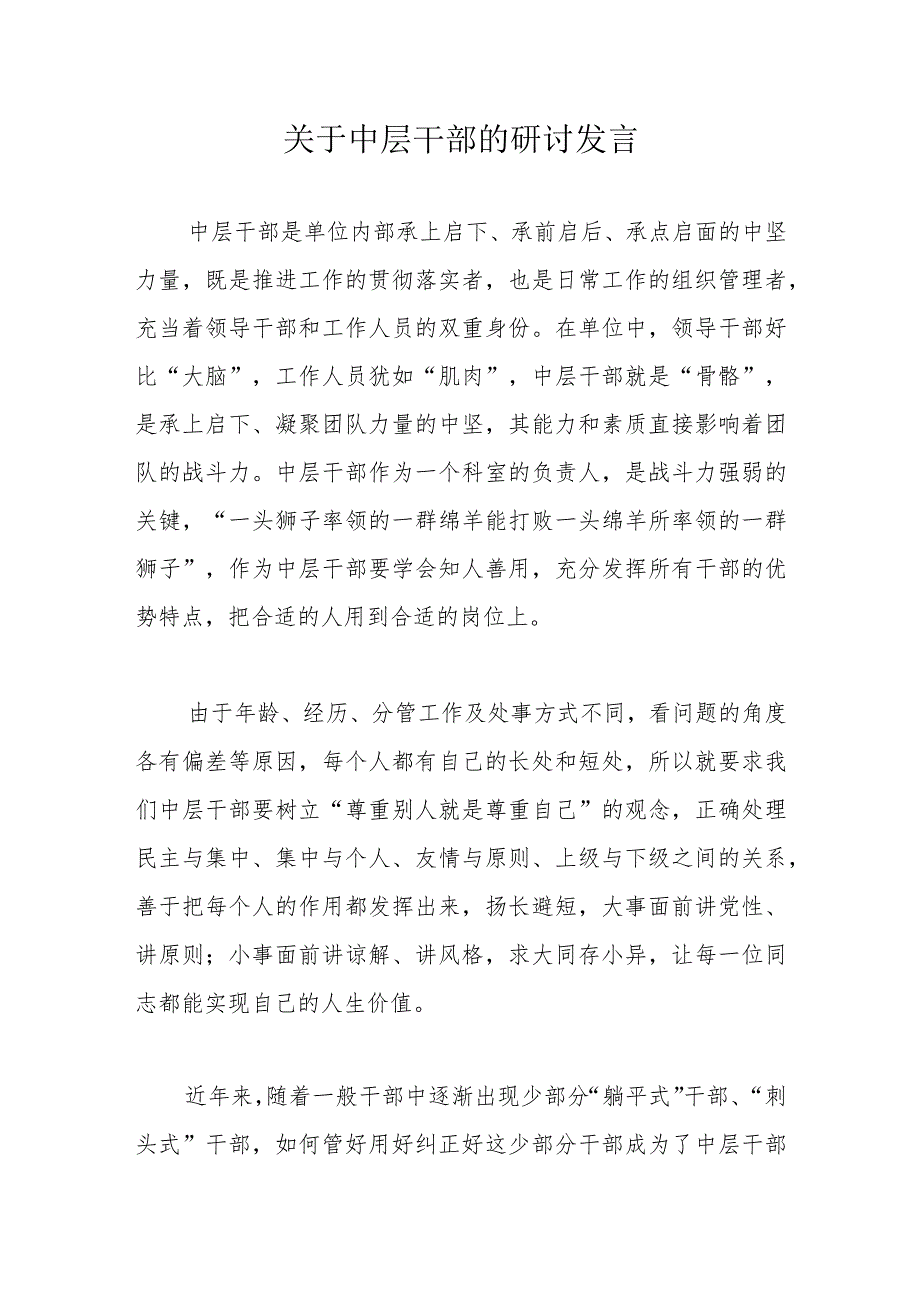 关于中层干部的研讨发言
中层干部是单位内部承上启下、承前启后、承点启面的中坚
力量，既是推进工作的贯彻落实者，也是日常工作的组织管理者，
充当着领导干部和工作人员的双重身份。在单位中，领导干部好
比“大脑”，工作人员犹如“肌肉”，中层干部就是“骨骼”，
是承上启下、凝聚团队力量的中坚，其能力和素质直接影响着团
队的战斗力。中层干部作为一个科室的负责人，是战斗力强弱的
关键，“一头狮子率领的一群绵羊能打败一头绵羊所率领的一群
狮子”，作为中层干部要学会知人善用，充分发挥所有干部的优
势特点，把合适的人用到合适的岗位上。
由于年龄、经历、分管工作及处事方式不同，看问题的角度
各有偏差等原因，每个人都有自己的长处和短处，所以就要求我
们中层干部要树立“尊重别人就是尊重自己”的观念，正确处理
民主与集中、集中与个人、友情与原则、上级与下级之间的关系，
善于把每个人的作用都发挥出来，扬长避短，大事面前讲党性、
讲原则；小事面前讲谅解、讲风格，求大同存小异，让每一位同
志都能实现自己的人生价值。
近年来，随着一般干部中逐渐出现少部分“躺平式”干部、“刺
头式”干部，如何管好用好纠正好这少部分干部成为了中层干部